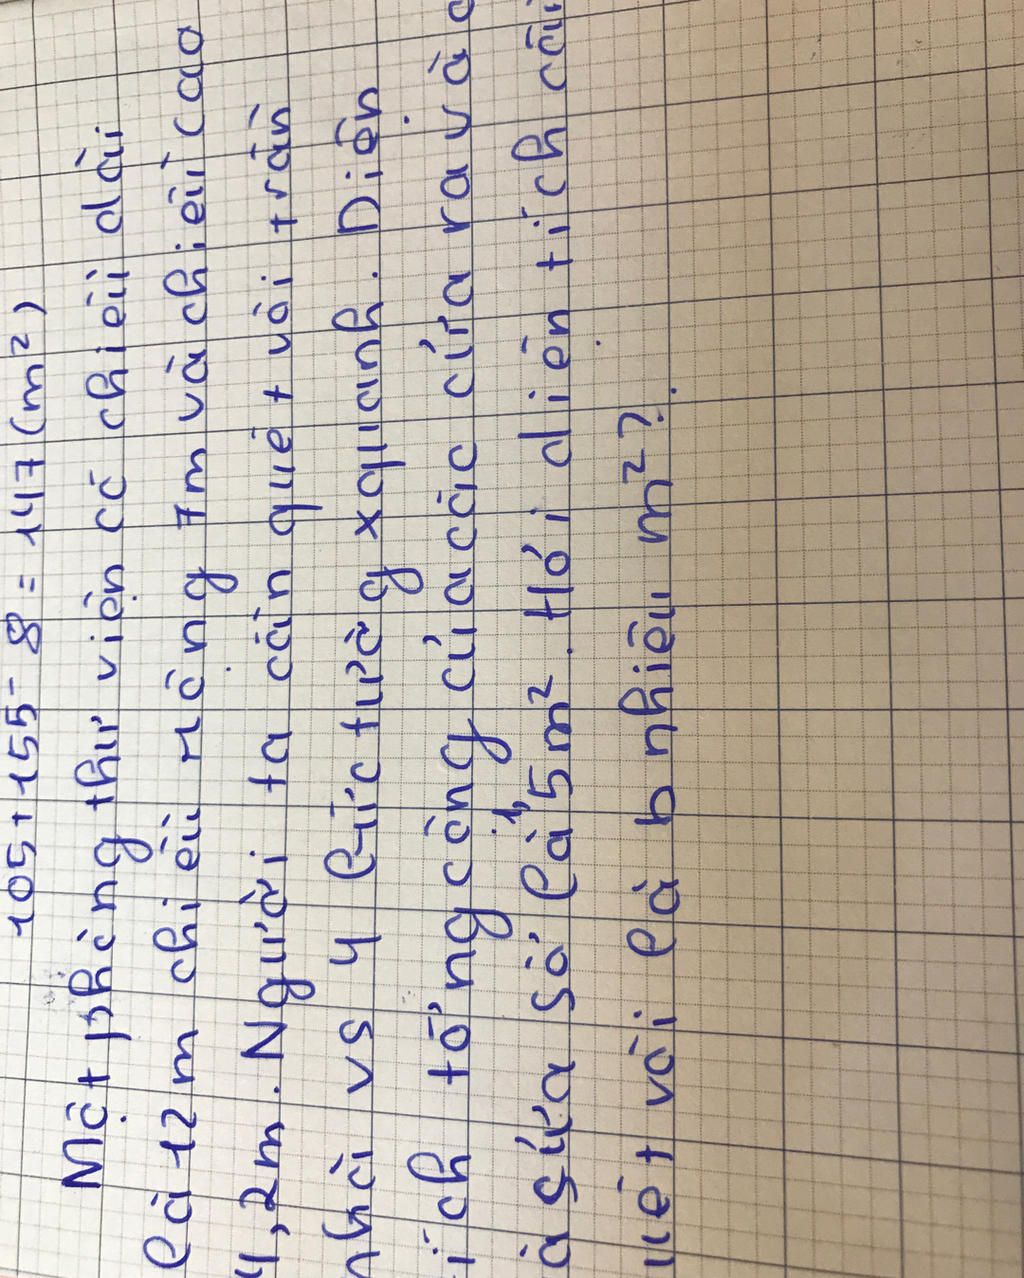 105+155-8=147(m²)
Một phòng thư viện có chiều dài
là 12m chiều rộng 7m và chiều cao
4,2m. Người ta cần quét vôi trần
nhà vs 4 bức tường xquanh. Diện
ích tổng cộng của các cửa ra và c
à sửa sổ là 5m². Hỏi diện tích cầ
uét vôi là b nhiêu m²?